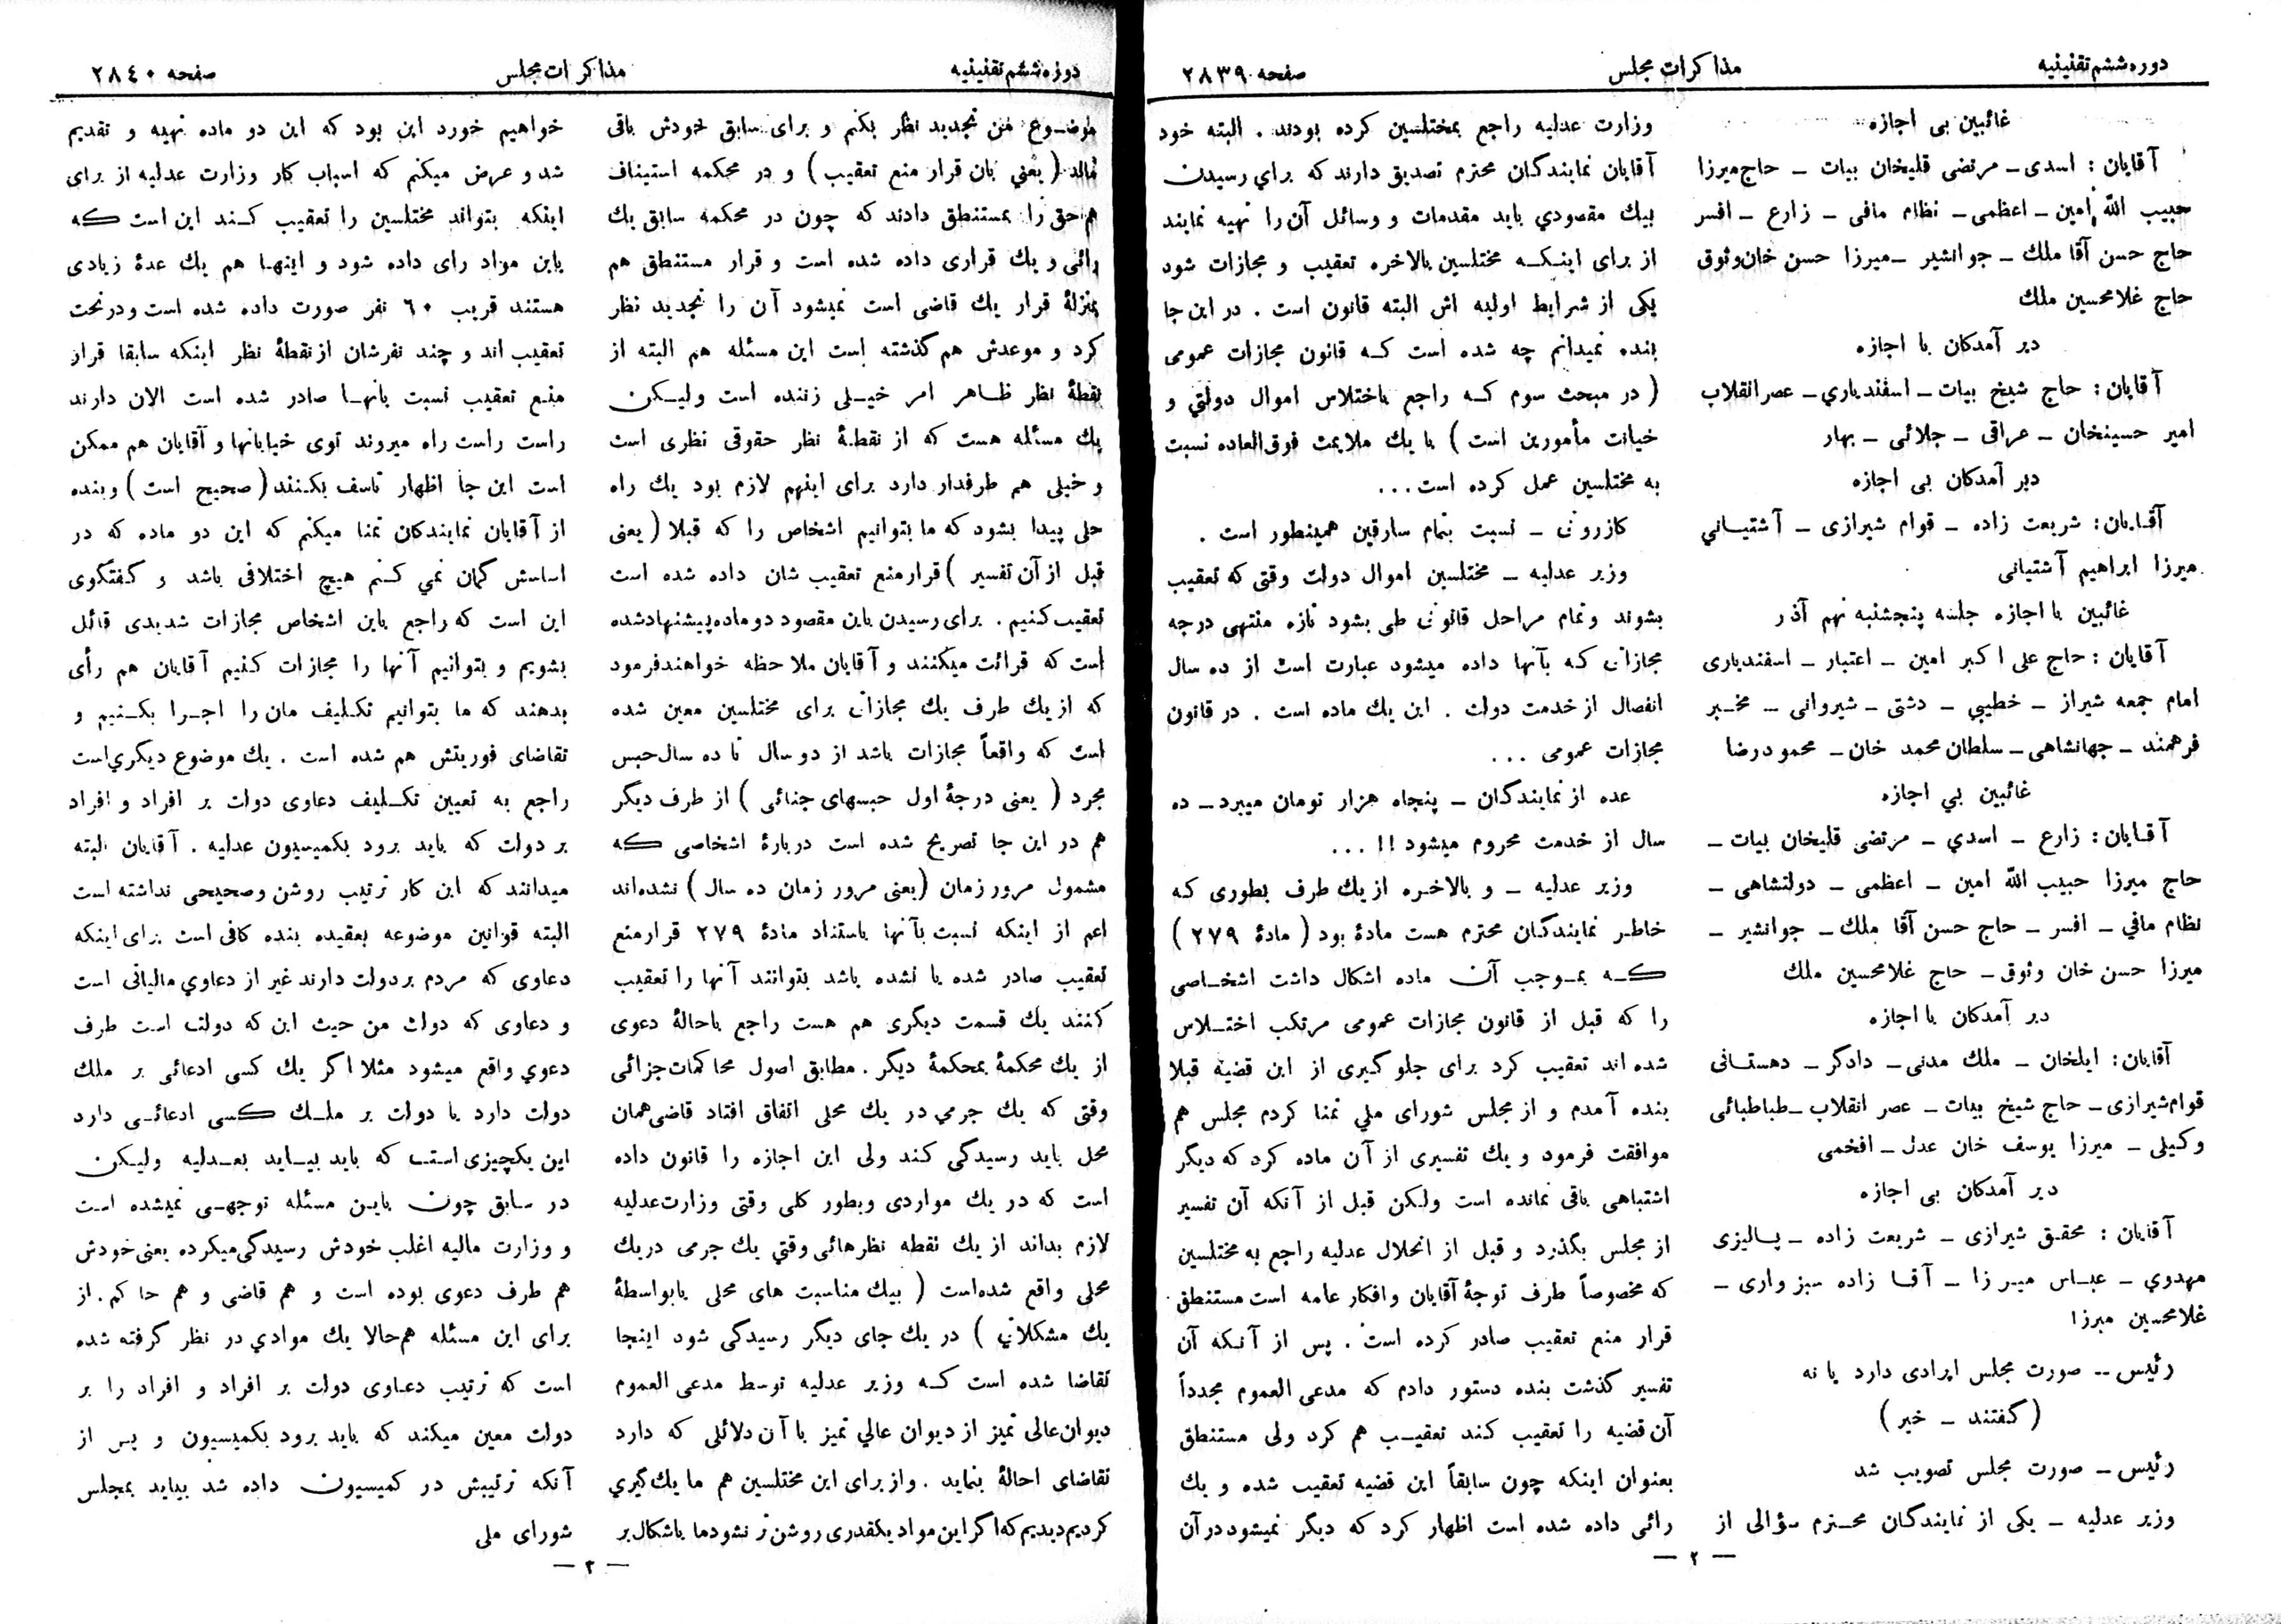 دوره ششم تقنینیه
مذاکرات مجلس
صفحه ۲۸۳۹
غائبین بی اجازه
آقایان : اسدی ـ مرتضی قلیخان بیات ـ حاج میرزا
حبیب الله امین ـ اعظمی ـ نظام مافی ـ زارع ـ افسر
حاج حسن آقا ملك ـ جوانشیر ـ میرزا حسن خان وثوق
حاج غلامحسین ملك
دیر آمدکان با اجازه
آقایان : حاج شیخ بیات ـ اسفندیاری ـ عصر انقلاب
امیر حسینخان ـ عراقی ـ جلائی ـ بهار
دیر آمدکان بی اجازه
آقایان : شریعت زاده ـ قوام شیرازی ـ آشتیانی
میرزا ابراهیم آشتیانی
غائبین با اجازه جلسه پنجشنبه نهم آذر
آقایان : حاج علی اکبر امین ـ اعتبار ـ اسفندیاری
امام جمعه شیراز ـ خطیبی ـ دشتی ـ شیروانی ـ مخبر
فرهمند ـ جهانشاهی ـ سلطان محمد خان ـ محمود رضا
غائبین بی اجازه
آقایان : زارع ـ اسدی ـ مرتضی قلیخان بیات ـ
حاج میرزا حبیب الله امین ـ اعظمی ـ دولتشاهی ـ
نظام مافی ـ افسر ـ حاج حسن آقا ملك ـ جوانشیر ـ
میرزا حسن خان وثوق ـ حاج غلامحسین ملك
دیر آمدکان با اجازه
آقایان : ایلخان ـ ملك مدنی ـ دادگر ـ دهستانی
قوام شیرازی ـ حاج شیخ بیات ـ عصر انقلاب ـ طباطبائی
وکیلی ـ میرزا یوسف خان عدل ـ افخمی
دیر آمدکان بی اجازه
آقایان : محقق شیرازی ـ شریعت زاده ـ پالیزی
مهدوی ـ عباس میرزا ـ آقا زاده سبزواری ـ
غلامحسین میرزا
رئیس ـ صورت مجلس ایرادی دارد یا نه
( گفتند ـ خیر )
رئیس ـ صورت مجلس تصویب شد
وزیر عدلیه ـ یکی از نمایندگان محترم سؤالی از
وزارت عدلیه راجع بمختلسین کرده بودند . البته خود
آقایان نمایندگان محترم تصدیق دارند که برای رسیدن
بیك مقصودی باید مقدمات و وسائل آن را تهیه نمایند
از برای اینکه مختلسین بالاخره تعقیب و مجازات شود
یکی از شرایط اولیه اش البته قانون است . در این جا
بنده نمیدانم چه شده است که قانون مجازات عمومی
( در مبحث سوم که راجع باختلاس اموال دولتی و
خیانت مأمورین است ) با یك ملایمت فوق العاده نسبت
به مختلسین عمل کرده است . . .
کازرونی ـ نسبت بتمام سارقین همینطور است .
وزیر عدلیه ـ مختلسین اموال دولت وقتی که تعقیب
بشوند و تمام مراحل قانونی طی بشود تازه منتهی درجه
مجازاتی که بآنها داده میشود عبارت است از ده سال
انفصال از خدمت دولت . این یك ماده است . در قانون
مجازات عمومی . . .
عده از نمایندگان ـ پنجاه هزار تومان میبرد ـ ده
سال از خدمت محروم میشود !! . . .
وزیر عدلیه ـ و بالاخره از یك طرف بطوری که
خاطر نمایندگان محترم هست مادهٔ بود ( مادهٔ ۲۷۹ )
که بموجب آن ماده اشکال داشت اشخاصی
را که قبل از قانون مجازات عمومی مرتکب اختلاس
شده اند تعقیب کرد برای جلوگیری از این قضیه قبلا
بنده آمدم و از مجلس شورای ملی تمنا کردم مجلس هم
موافقت فرمود و یك تفسیری از آن ماده کرد که دیگر
اشتباهی باقی نمانده است ولکن قبل از آنکه آن تفسیر
از مجلس بگذرد و قبل از انحلال عدلیه راجع به مختلسین
که مخصوصاً طرف توجهٔ آقایان و افکار عامه است مستنطق
قرار منع تعقیب صادر کرده است . پس از آنکه آن
تفسیر گذشت بنده دستور دادم که مدعی العموم مجدداً
آن قضیه را تعقیب کند تعقیب هم کرد ولی مستنطق
بعنوان اینکه چون سابقاً این قضیه تعقیب شده و یك
رائی داده شده است اظهار کرد که دیگر نمیشود در آن
— ۲ —
دوره ششم تقنینیه
مذاکرات مجلس
صفحه ۲۸٤۰
موضوع من تجدید نظر بکنم و برای سابق خودش باقی
ماند ( یعنی بان قرار منع تعقیب ) و در محکمه استیناف
هم حق را بمستنطق دادند که چون در محکمه سابق یك
رائی و یك قراری داده شده است و قرار مستنطق هم
بمنزلهٔ قرار یك قاضی است نمیشود آن را تجدید نظر
کرد و موعدش هم گذشته است این مسئله هم البته از
نقطهٔ نظر ظاهر امر خیلی زننده است ولیکن
یك مسئله هست که از نقطهٔ نظر حقوقی نظری است
و خیلی هم طرفدار دارد برای اینهم لازم بود یك راه
حلی پیدا بشود که ما بتوانیم اشخاص را که قبلا ( یعنی
قبل از آن تفسیر ) قرار منع تعقیب شان داده شده است
تعقیب کنیم . برای رسیدن باین مقصود دو ماده پیشنهاد شده
است که قرائت میکنند و آقایان ملاحظه خواهند فرمود
که از یك طرف یك مجازاتی برای مختلسین معین شده
است که واقعاً مجازات باشد از دو سال تا ده سال حبس
مجرد ( یعنی درجهٔ اول حبسهای جنائی ) از طرف دیگر
هم در این جا تصریح شده است دربارهٔ اشخاصی که
مشمول مرور زمان ( یعنی مرور زمان ده سال ) نشده اند
اعم از اینکه نسبت بآنها باستناد مادهٔ ۲۷۹ قرار منع
تعقیب صادر شده یا نشده باشد بتوانند آنها را تعقیب
کنند یك قسمت دیگری هم هست راجع باحالهٔ دعوی
از یك محکمهٔ بمحکمهٔ دیگر . مطابق اصول محاکمات جزائی
وقتی که یك جرمی در یك محلی اتفاق افتاد قاضی همان
محل باید رسیدگی کند ولی این اجازه را قانون داده
است که در یك مواردی وبطور کلی وقتی وزارت عدلیه
لازم بداند از یك نقطه نظرهائی وقتی یك جرمی در یك
محلی واقع شده است ( بیك مناسبت های محلی یا بواسطهٔ
یك مشکلاتی ) در یك جای دیگر رسیدگی شود اینجا
تقاضا شده است که وزیر عدلیه توسط مدعی العموم
دیوان عالی تمیز از دیوان عالی تمیز با آن دلائلی که دارد
تقاضای احالهٔ بنماید . و از برای این مختلسین هم ما یك گیری
کردیم دیدیم که اگر این مواد یکقدری روشن تر نشود ما باشکال بر
خواهیم خورد این بود که این دو ماده تهیه و تقدیم
شد و عرض میکنم که اسباب کار وزارت عدلیه از برای
اینکه بتواند مختلسین را تعقیب کند این است که
باین مواد رای داده شود و اینها هم یك عدهٔ زیادی
هستند قریب ٦۰ نفر صورت داده شده است و در تحت
تعقیب اند و چند نفرشان از نقطهٔ نظر اینکه سابقا قرار
منع تعقیب نسبت بانها صادر شده است الان دارند
راست راست راه میروند توی خیابانها و آقایان هم ممکن
است این جا اظهار تاسف بکنند ( صحیح است ) و بنده
از آقایان نمایندگان تمنا میکنم که این دو ماده که در
اساسش گمان نمی کنم هیچ اختلافی باشد و گفتگوی
این است که راجع باین اشخاص مجازات شدیدی قائل
بشویم و بتوانیم آنها را مجازات کنیم آقایان هم رأی
بدهند که ما بتوانیم تکلیف مان را اجرا بکنیم و
تقاضای فوریتش هم شده است . یك موضوع دیگری است
راجع به تعیین تکلیف دعاوی دولت بر افراد و افراد
بر دولت که باید برود بکمیسیون عدلیه . آقایان البته
میدانند که این کار ترتیب روشن و صحیحی نداشته است
البته قوانین موضوعه بعقیده بنده کافی است برای اینکه
دعاوی که مردم بر دولت دارند غیر از دعاوی مالیاتی است
و دعاوی که دولت من حیث این که دولت است طرف
دعوی واقع میشود مثلا اگر یك کسی ادعائی بر ملك
دولت دارد یا دولت بر ملك کسی ادعائی دارد
این یکچیزی است که باید بیاید بعدلیه ولیکن
در سابق چون باین مسئله توجهی نمیشده است
و وزارت مالیه اغلب خودش رسیدگی میکرده یعنی خودش
هم طرف دعوی بوده است و هم قاضی و هم حاکم . از
برای این مسئله هم حالا یك موادی در نظر گرفته شده
است که ترتیب دعاوی دولت بر افراد و افراد را بر
دولت معین میکند که باید برود بکمیسیون و پس از
آنکه ترتیبش در کمیسیون داده شد بیاید بمجلس
شورای ملی
— ۳ —